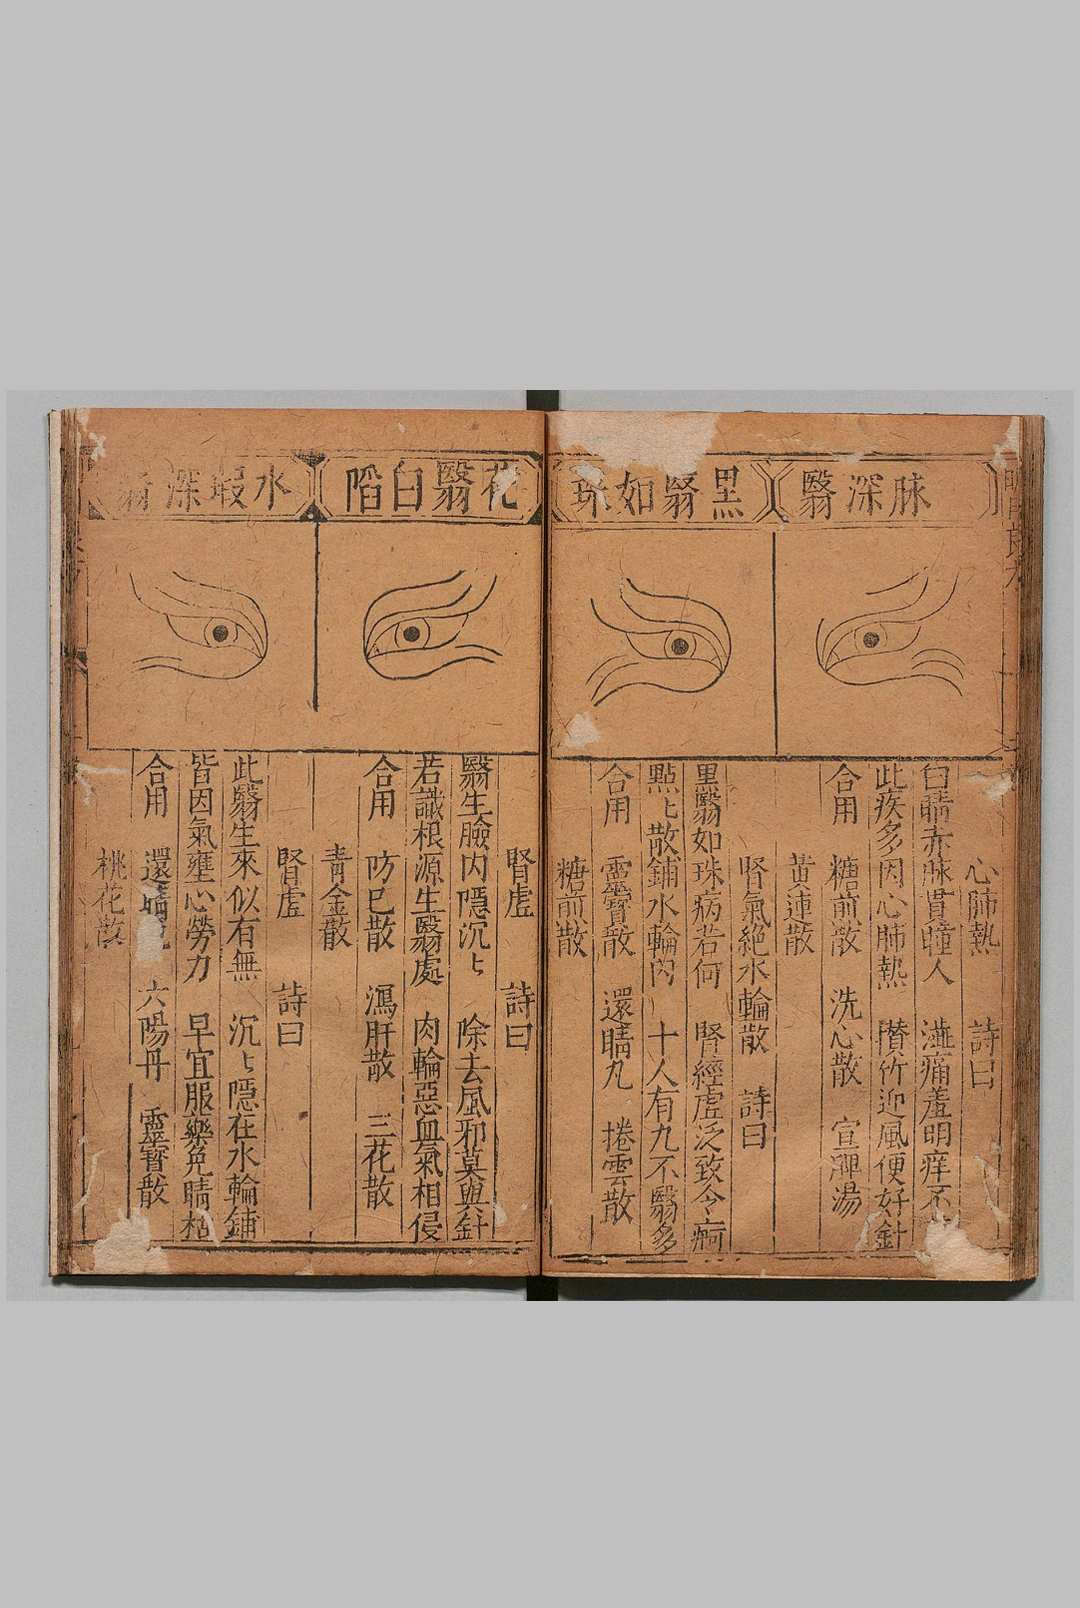 脉深翳
黑翳如珠
心肺熱 詩曰
白睛赤脉貫瞳人 澁痛羞明痒不
此疾多因心肺熱 攅竹迎風便好針
合用 糖煎散 洗心散 宣渾湯
黃連散
腎氣絶水輪散 詩曰
黑翳如珠病若何 腎經虛泛致令痾
點〻散鋪水輪内 十人有九不翳多
合用 靈寳散 還睛丸 捲雲散
糖煎散
花翳白䧟
水瑕深翳
腎虛 詩曰
翳生臉内隱沉〻 除去風邪莫與針
若識根源生翳處 肉輪惡血氣相侵
合用 防巳散 瀉肝散 三花散
青金散
腎虛 詩曰
此翳生來似有無 沉〻隱在水輪鋪
皆因氣壅心勞力 早宜服藥免睛枯
合用 還睛 六陽丹 靈寳散
桃花散